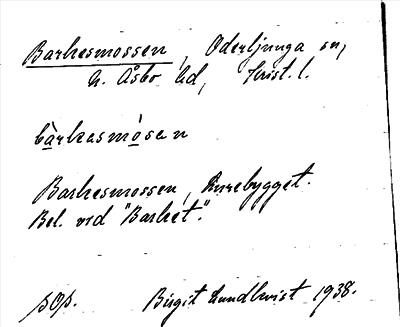 Barkesmossen, Oderljunga sn,
N. Åsbo hd, Krist. l.
bàrkasmósen
Barkesmossen, Turebygget.
Bel. vid "Barket".
Birgit Lundkvist 1938.